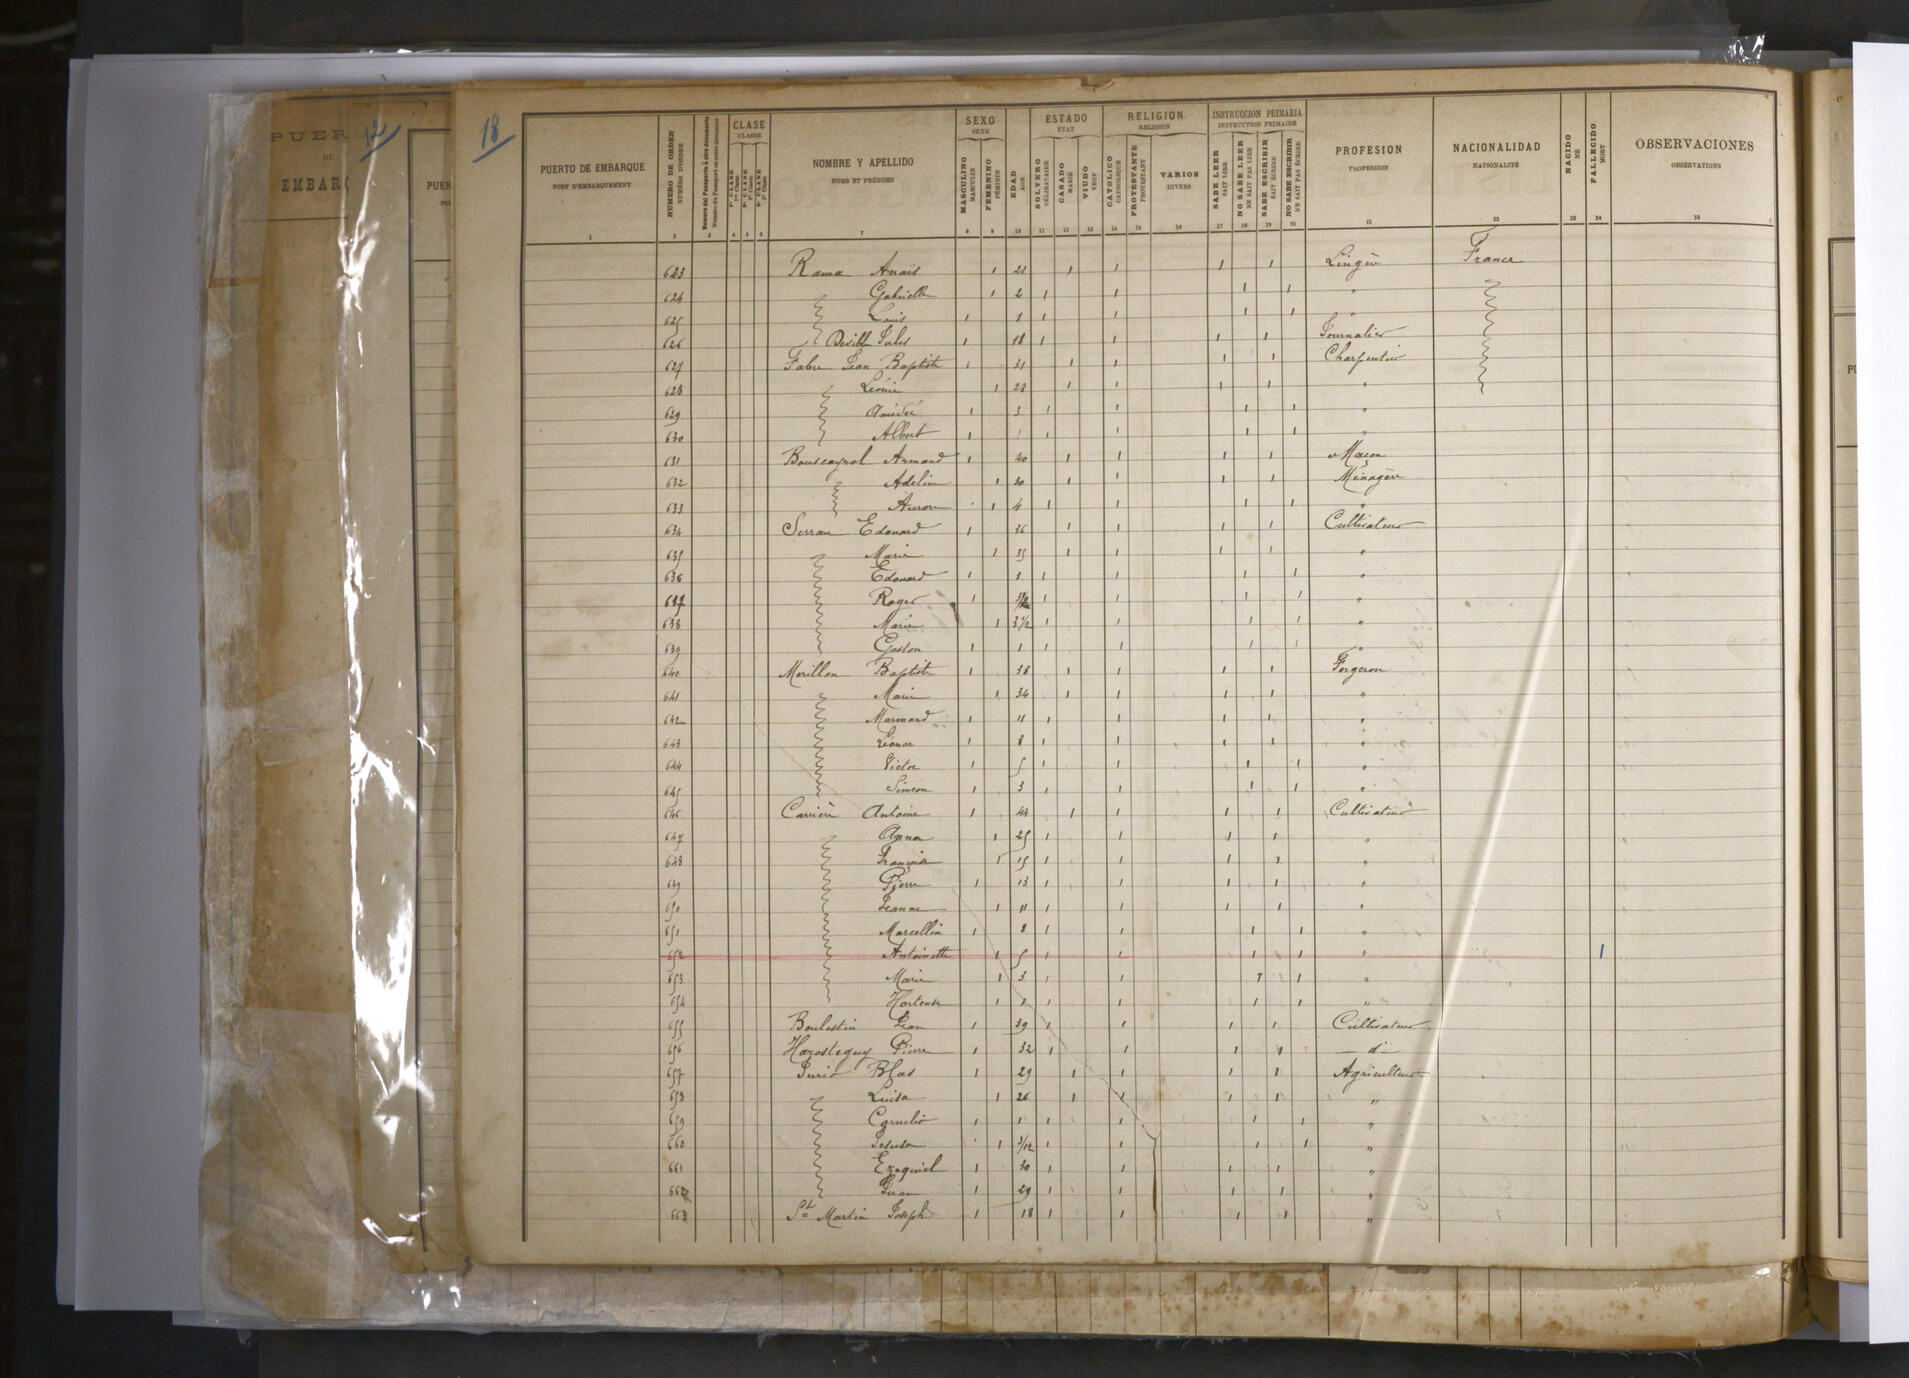 PUER
DE
EMBAR
12
PUER
18
PUERTO DE EMBARQUE
PORT D'EMBARQUEMENT
NUMERO DE ORDEN
NUMÉRO D'ORDRE
CLASE
CLASSE
1ª CLASE
1re Classe
2ª CLASE
2e Classe
3ª CLASE
3e Classe
NOMBRE Y APELLIDO
NOMS ET PRÉNOMS
SEXO
SEXE
MASCULINO
MASCULIN
FEMENINO
FÉMININ
EDAD
AGE
ESTADO
ÉTAT
SOLTERO
CÉLIBATAIRE
CASADO
MARIÉ
VIUDO
VEUF
RELIGION
RELIGION
CATOLICO
CATHOLIQUE
PROTESTANTE
PROTESTANT
VARIOS
DIVERS
INSTRUCCION PRIMARIA
INSTRUCTION PRIMAIRE
SABE LEER
SAIT LIRE
NO SABE LEER
NE SAIT PAS LIRE
SABE ESCRIBIR
SAIT ÉCRIRE
NO SABE ESCRIBIR
NE SAIT PAS ÉCRIRE
PROFESION
PROFESSION
NACIONALIDAD
NATIONALITÉ
NACIDO
NÉ
FALLECIDO
MORT
OBSERVACIONES
OBSERVATIONS
1 2 3 4 5 6 7 8 9 10 11 12 13 14 15 16 17 18 19 20 21 22 23 24 25
623 Rama Anaïs 1 21 1 1 1 1 Lingère France
624 Gabrielle 1 2 1 1 1 1 "
625 Louis 1 1 1 1 1 1 "
626 Jules 1 18 1 1 1 1 Journalier
627 Fabre Jean Baptiste 1 31 1 1 1 1 Charpentier
628 Léonie 1 28 1 1 1 1 "
629 Amédée 1 3 1 1 1 1 "
630 Albert 1 1 1 1 1 1 "
631 Bouscayrol Armand 1 40 1 1 1 1 Maçon
632 Adeline 1 30 1 1 1 1 Ménagère
633 Aurore 1 4 1 1 1 1 "
634 Edouard 1 36 1 1 1 1 Cultivateur
635 Marie 1 35 1 1 1 1 "
636 Edouard 1 1 1 1 1 "
637 Roger 1 1 1 1 1 "
638 Marie 1 3 1/2 1 1 1 1 "
639 Gaston 1 1 1 1 1 1 "
640 Merillon Baptiste 1 38 1 1 1 1 Forgeron
641 Marie 1 34 1 1 1 1 "
642 Marmand 1 11 1 1 1 1 "
643 Léonor 1 8 1 1 1 1 "
644 Victor 1 5 1 1 1 1 "
645 Siméon 1 3 1 1 1 1 "
646 Carrière Antoine 1 44 1 1 1 1 Cultivateur
647 Anna 1 25 1 1 1 1 "
648 Françoise 1 15 1 1 1 1 "
649 Pierre 1 13 1 1 1 1 "
650 Jeanne 1 11 1 1 1 1 "
651 Marcellin 1 8 1 1 1 1 "
652 Antoinette 1 5 1 1 1 1 " 1
653 Marie 1 3 1 1 1 1 "
654 Hortense 1 1 1 1 1 1 "
655 Boulestin Jean 1 39 1 1 1 1 Cultivateur
656 Harosteguy Pierre 1 32 1 1 1 1 d°
657 Blas 1 29 1 1 1 1 Agriculteur
658 Luisa 1 26 1 1 1 1 "
659 Cornelio 1 1 1 1 1 1 "
660 Jesusa 1 3/12 1 1 1 1 "
661 Ezequiel 1 30 1 1 1 1 "
662 Juan 1 29 1 1 1 1 "
663 St Martin Joseph 1 18 1 1 1 1 "